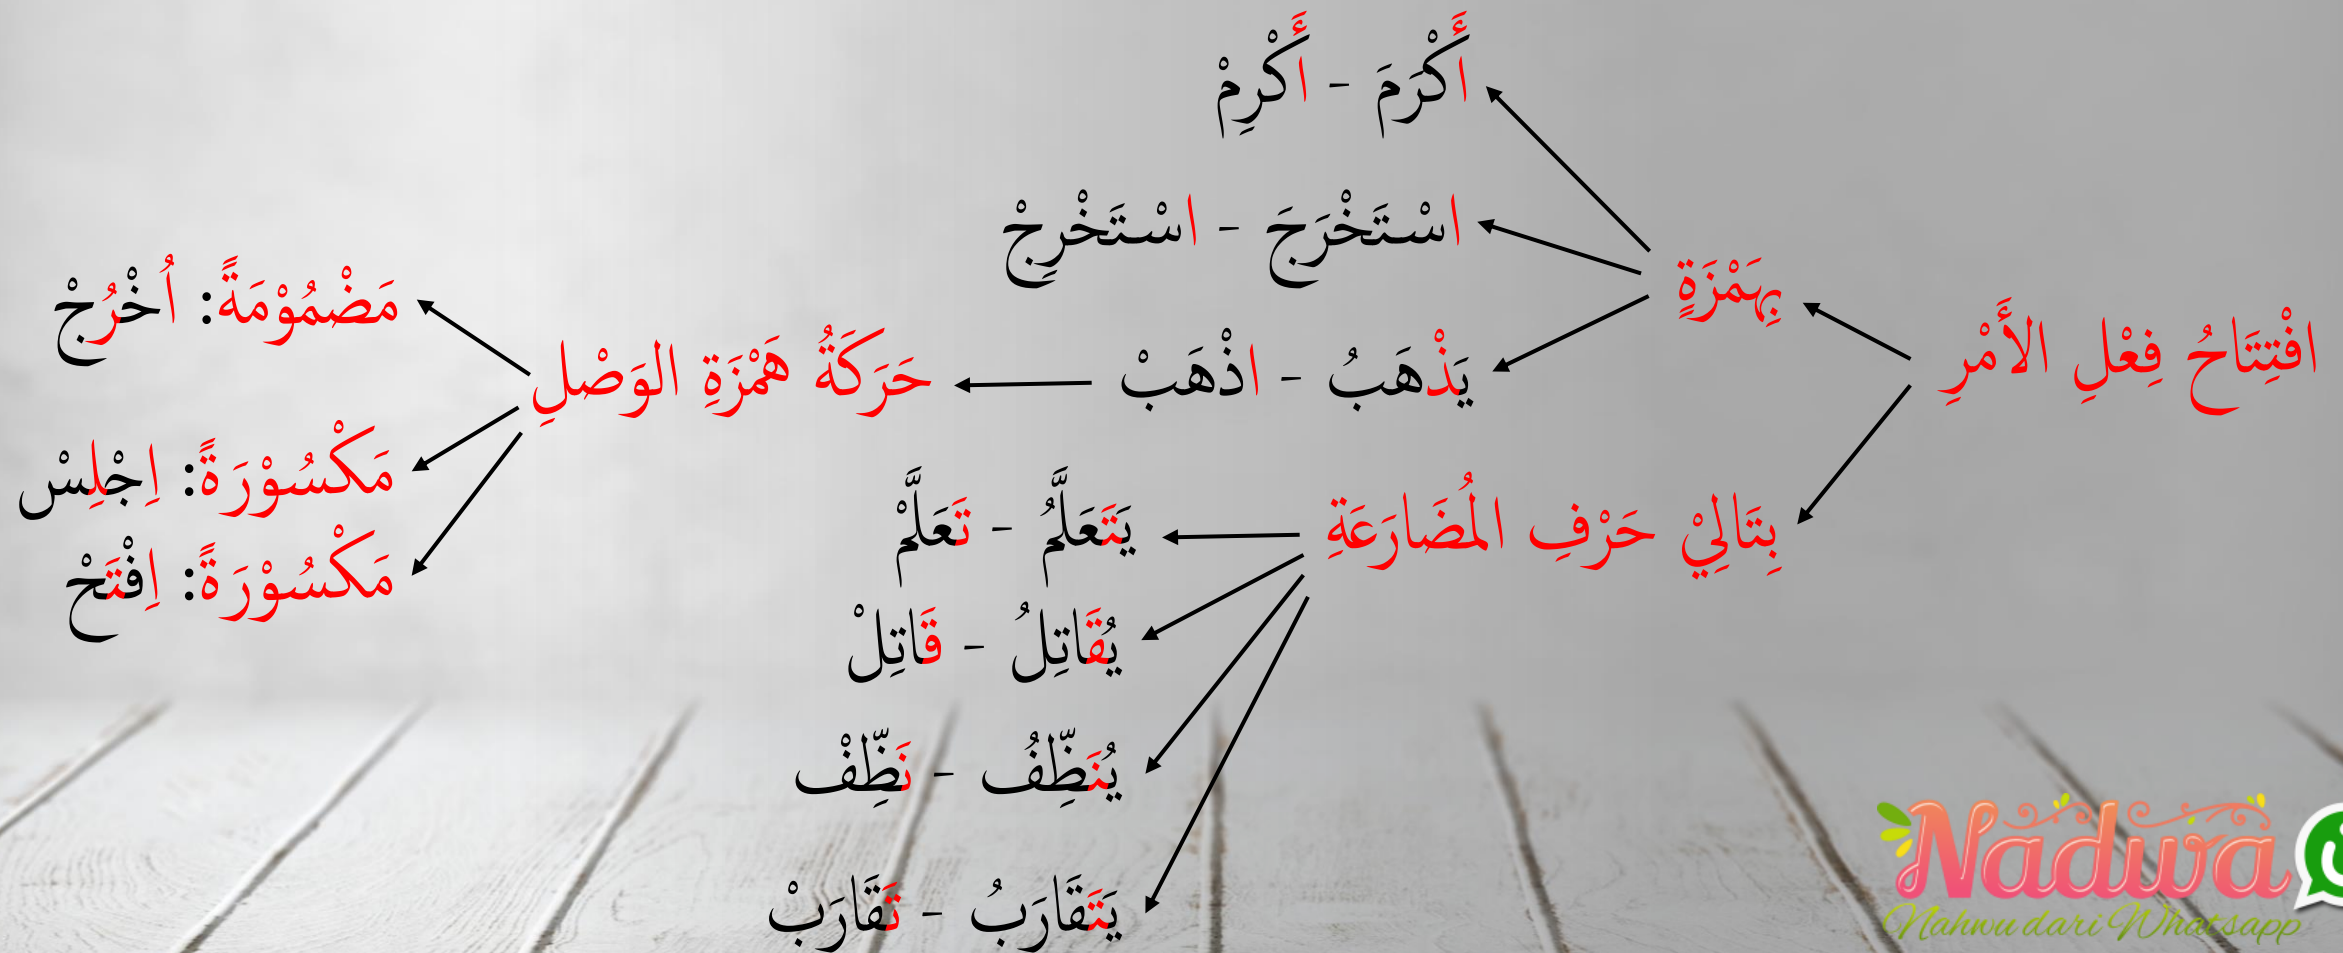 افْتِتَاحُ فِعْلِ الأَمْرِ
بِهَمْزَةٍ
أَكْرَمَ - أَكْرِمْ
اسْتَخْرَجَ - اسْتَخْرِجْ
يَذْهَبُ - اذْهَبْ
حَرَكَةُ هَمْزَةِ الوَصْلِ
مَضْمُوْمَةً: اُخْرُجْ
مَكْسُوْرَةً: اِجْلِسْ
مَكْسُوْرَةً: اِفْتَحْ
بِتَالِيْ حَرْفِ المُضَارَعَةِ
يَتَعَلَّمُ - تَعَلَّمْ
يُقَاتِلُ - قَاتِلْ
يُنَظِّفُ - نَظِّفْ
يَتَقَارَبُ - تَقَارَبْ
Nadwa
Nahwu dari Whatsapp